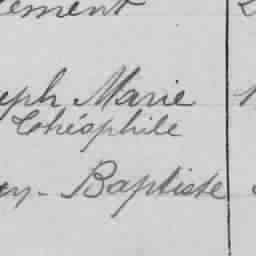 ement
eph Marie
Théophile
ey - Baptiste